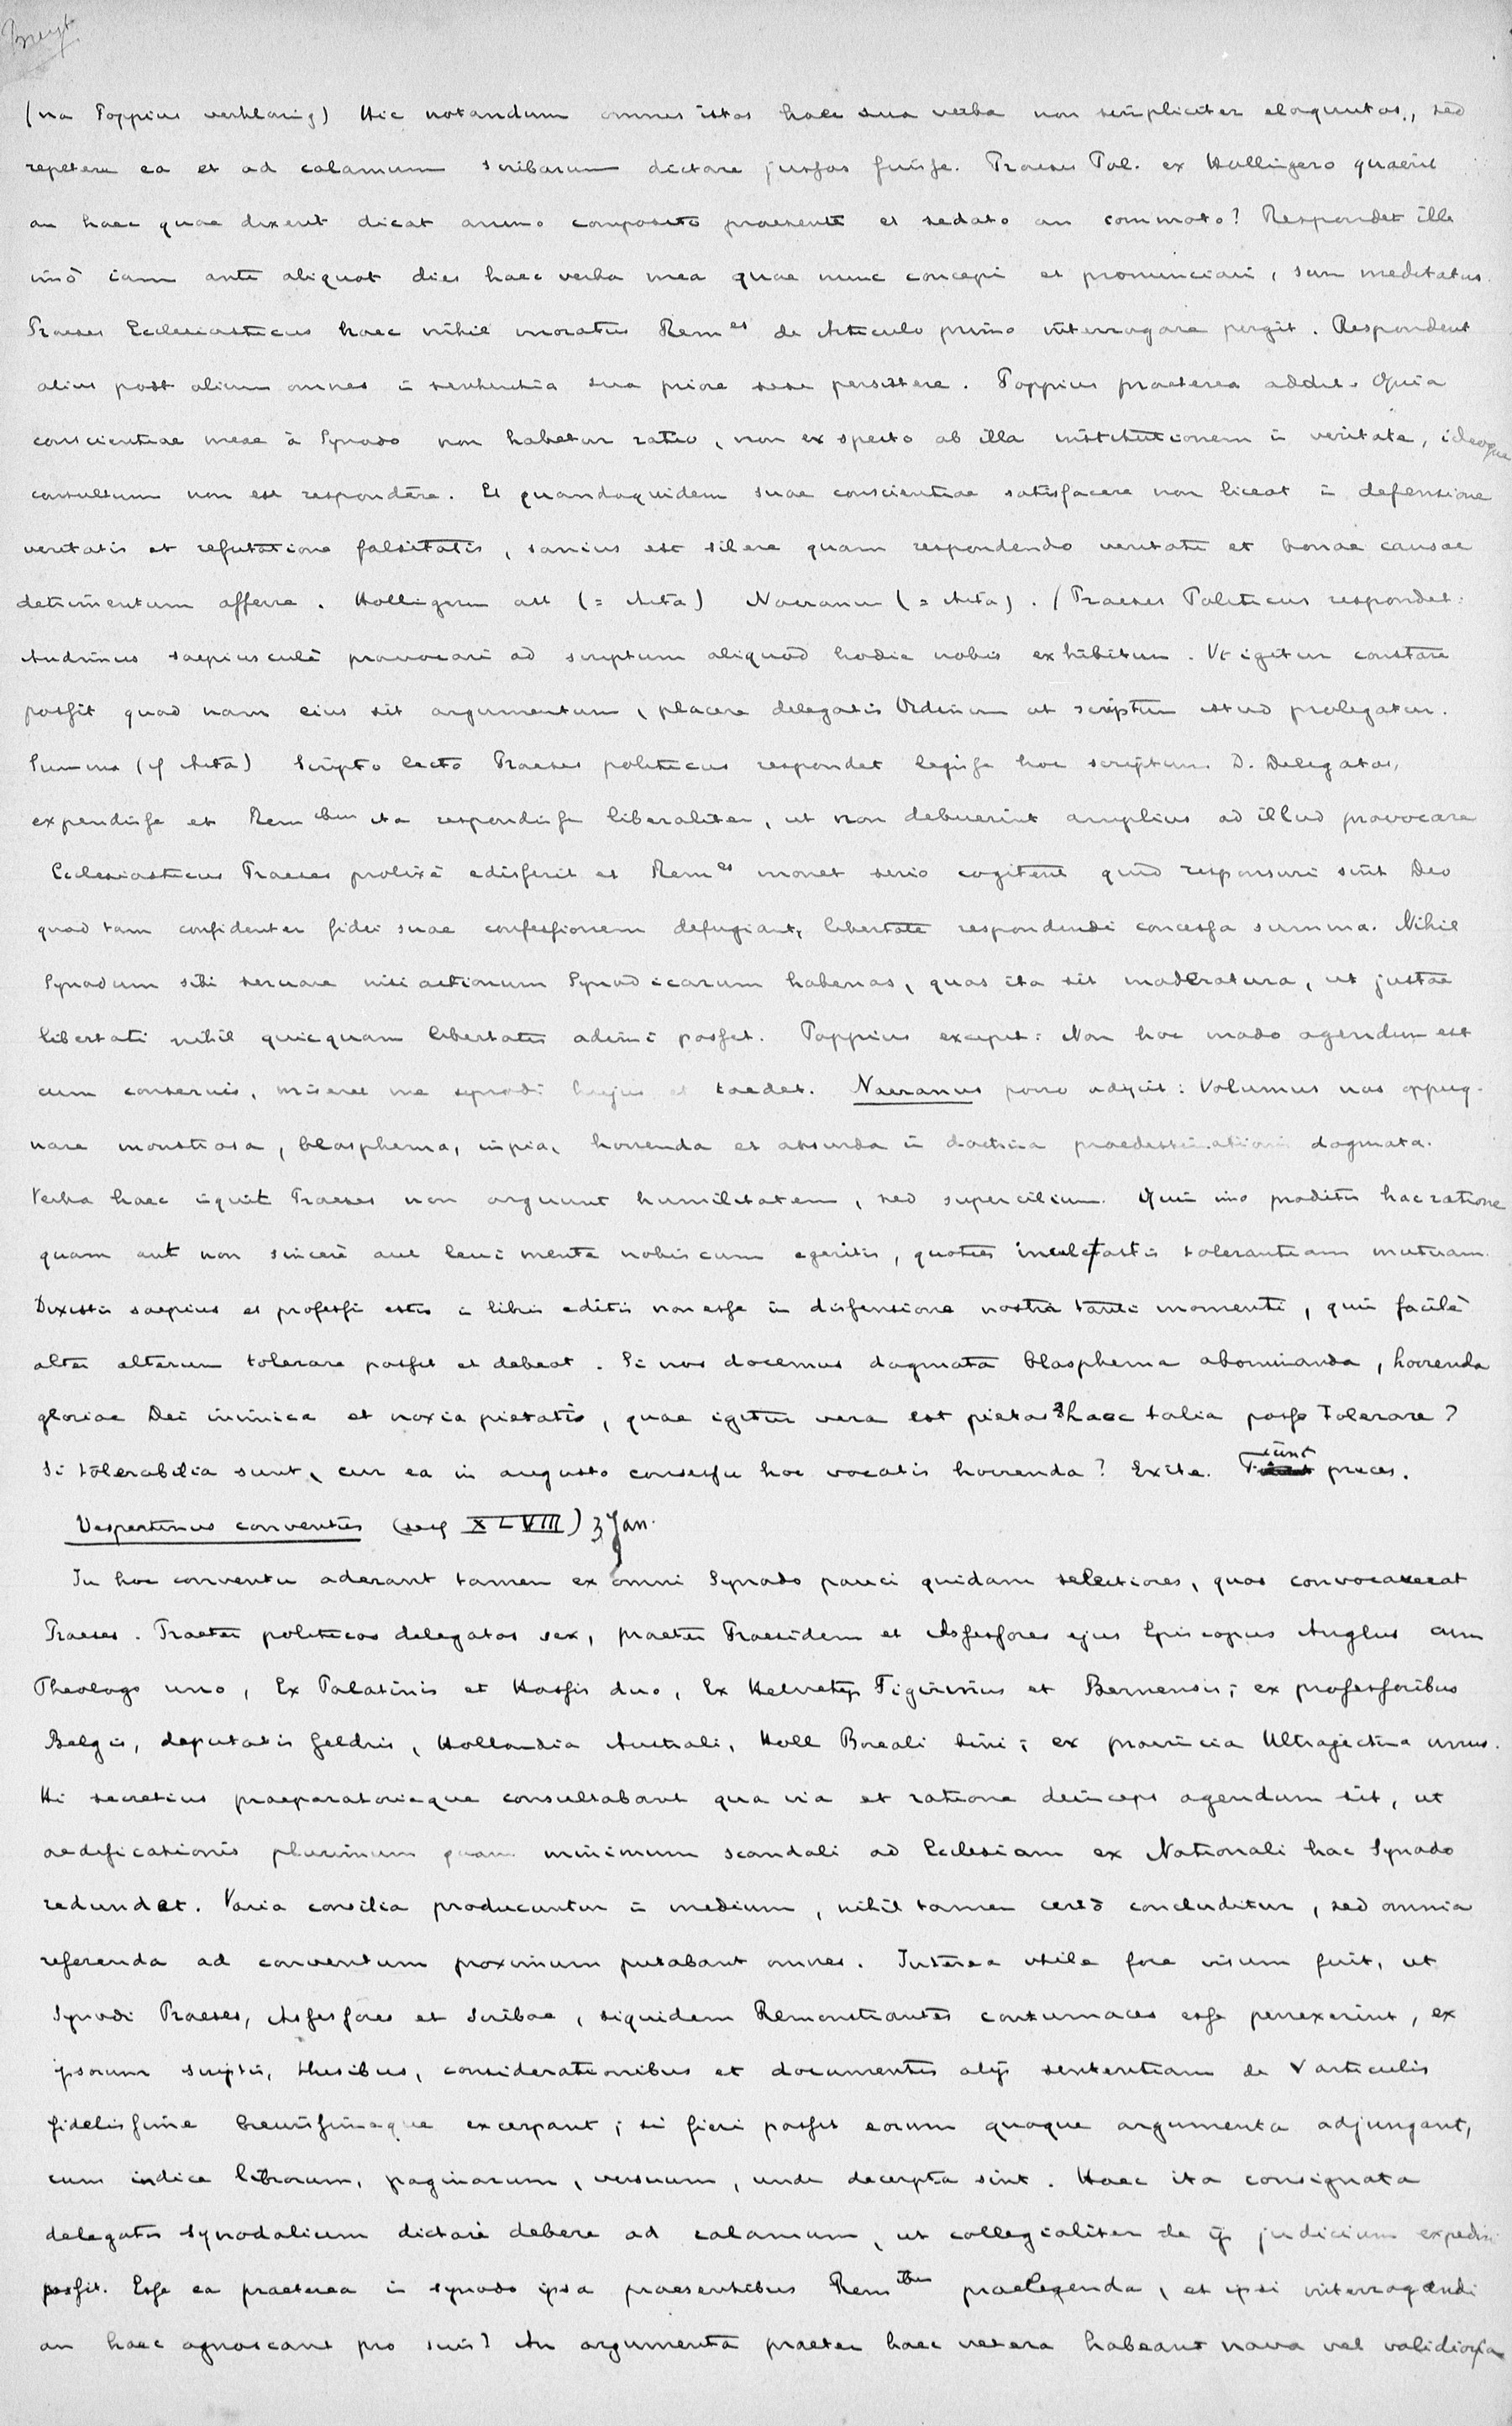 Breyt.
(na Poppius verklaring) Hic notandum omnes istos haec sua verba non simpliciter eloquutos, sed
repetere ea et ad calamum scribarum dictare jussos fuisse. Praeses Pol. ex Hollingero quaerit
an haec quae dixerit dicat animo composito praesente et sedato an commoto? Respondet ille
imò iam ante aliquot dies haec verba mea quae nunc concepi et pronunciavi, sum meditatus.
Praeses Ecclesiasticus haec nihil moratus Rem^es de Articulo primo interrogare pergit. Respondent
alius post alium omnes in sententia sua priore sese persistere. Poppius praeterea addit. Quia
conscientiae meae à Synodo non habetur ratio, non exspecto ab illa institutionem in veritate, ideoque
consultum non est respondere. Et quandoquidem suae conscientiae satisfacere non liceat in defensione
veritatis et refutatione falsitatis, sanius est silere quam respondendo veritati et bonae causae
detrimentum afferre. Hollingerus ait (= Acta) Naeranus (= Acta). (Praeses Politicus respondet:
Audimus saepiusculè provocari ad scriptum aliquod hodie nobis exhibitum. Vt igitur constare
possit quod nam eius sit argumentum, placere delegatis Ordinum ut scriptum istud praelegatur.
Summa (cf Acta) Scripto lecto Praeses politicus respondet legisse hoc scriptum D. Delegatos,
expendisse et Rem^ibus ita respondisse liberaliter, ut non debuerint amplius ad illud provocare
Ecclesiasticus Praeses prolixè edisserit et Rem^es monet serio cogitent quid responsuri sint Deo
quod tam confidenter fidei suae confessionem defugiant, libertate respondendi concessa summa. Nihil
Synodum sibi servare nisi actionum Synodicarum habenas, quas ita sit moderatura, ut justae
libertati nihil quicquam libertatis adimi posset. Poppius excepit: Non hoc modo agendum est
cum conservis, miseret me synodi hujus et taedet. Naeranus porro adijcit: Volumus nos oppug-
nare monstrosa, blasphema, impia, horrenda et absurda in doctrina praedestinationis dogmata.
Verba haec inquit Praeses non arguunt humilitatem, sed supercilium. Quin imo proditis hac ratione
quam aut non sincerè aut levi mente nobiscum egeritis, quoties inculcastis tolerantiam mutuam.
Dixistis saepius et professi estis in libris editis non esse in dissensione nostra tanti momenti, quin facilè
alter alterum tolerare posset et debeat. Si nos docemus dogmata blasphema abominanda, horrenda
gloriae Dei inimica et noxia pietatis, quae igitur vera est pietas? haec talia posse tolerare?
Si tolerabilia sunt, cur ea in augusto consessu hoc vocatis horrenda? Exite. Fiunt preces.
Vespertinus conventus (seq XLVIII) 3 Jan.
In hoc conventu aderant tamen ex omni Synodo pauci quidam selectiores, quos convocaverat
Praeses. Praeter politicos delegatos sex, praeter Praesidem et Assessores ejus Episcopus Anglus cum
Theologo uno, Ex Palatinis et Hassis duo, Ex Helvetijs Tigurinus et Bernensis; ex professoribus
Belgis, deputatis Geldris, Hollandia Australi, Holl Boreali bini; ex provincia Ultrajectina unus.
Hi secretius praeparatorieque consultabant qua via et ratione deinceps agendum sit, ut
aedificationis plurimum quam minimum scandali ad Ecclesiam ex Nationali hac Synodo
redundet. Varia consilia producuntur in medium, nihil tamen certò concluditur, sed omnia
referenda ad conventum proximum putabant omnes. Interea utile fore visum fuit, ut
Synodi Praeses, Assessores et Scribae, siquidem Remonstrantes contumaces esse perrexerint, ex
ipsorum scriptis, thesibus, considerationibus et documentis alijs sententiam de V articulis
fidelissime brevissimeque excerpant; si fieri posset eorum quoque argumenta adjungant,
cum indice librorum, paginarum, versuum, unde decerpta sint. Haec ita consignata
delegatis Synodalium dictari debere ad calamum, ut collegialiter de ijs judicium expediri
possit. Esse ea praeterea in synodo ipsa praesentibus Rem^ibus praelegenda, et ipsi interrogandi
an haec agnoscant pro suis? An argumenta praeter haec vetera habeant nova vel validiora